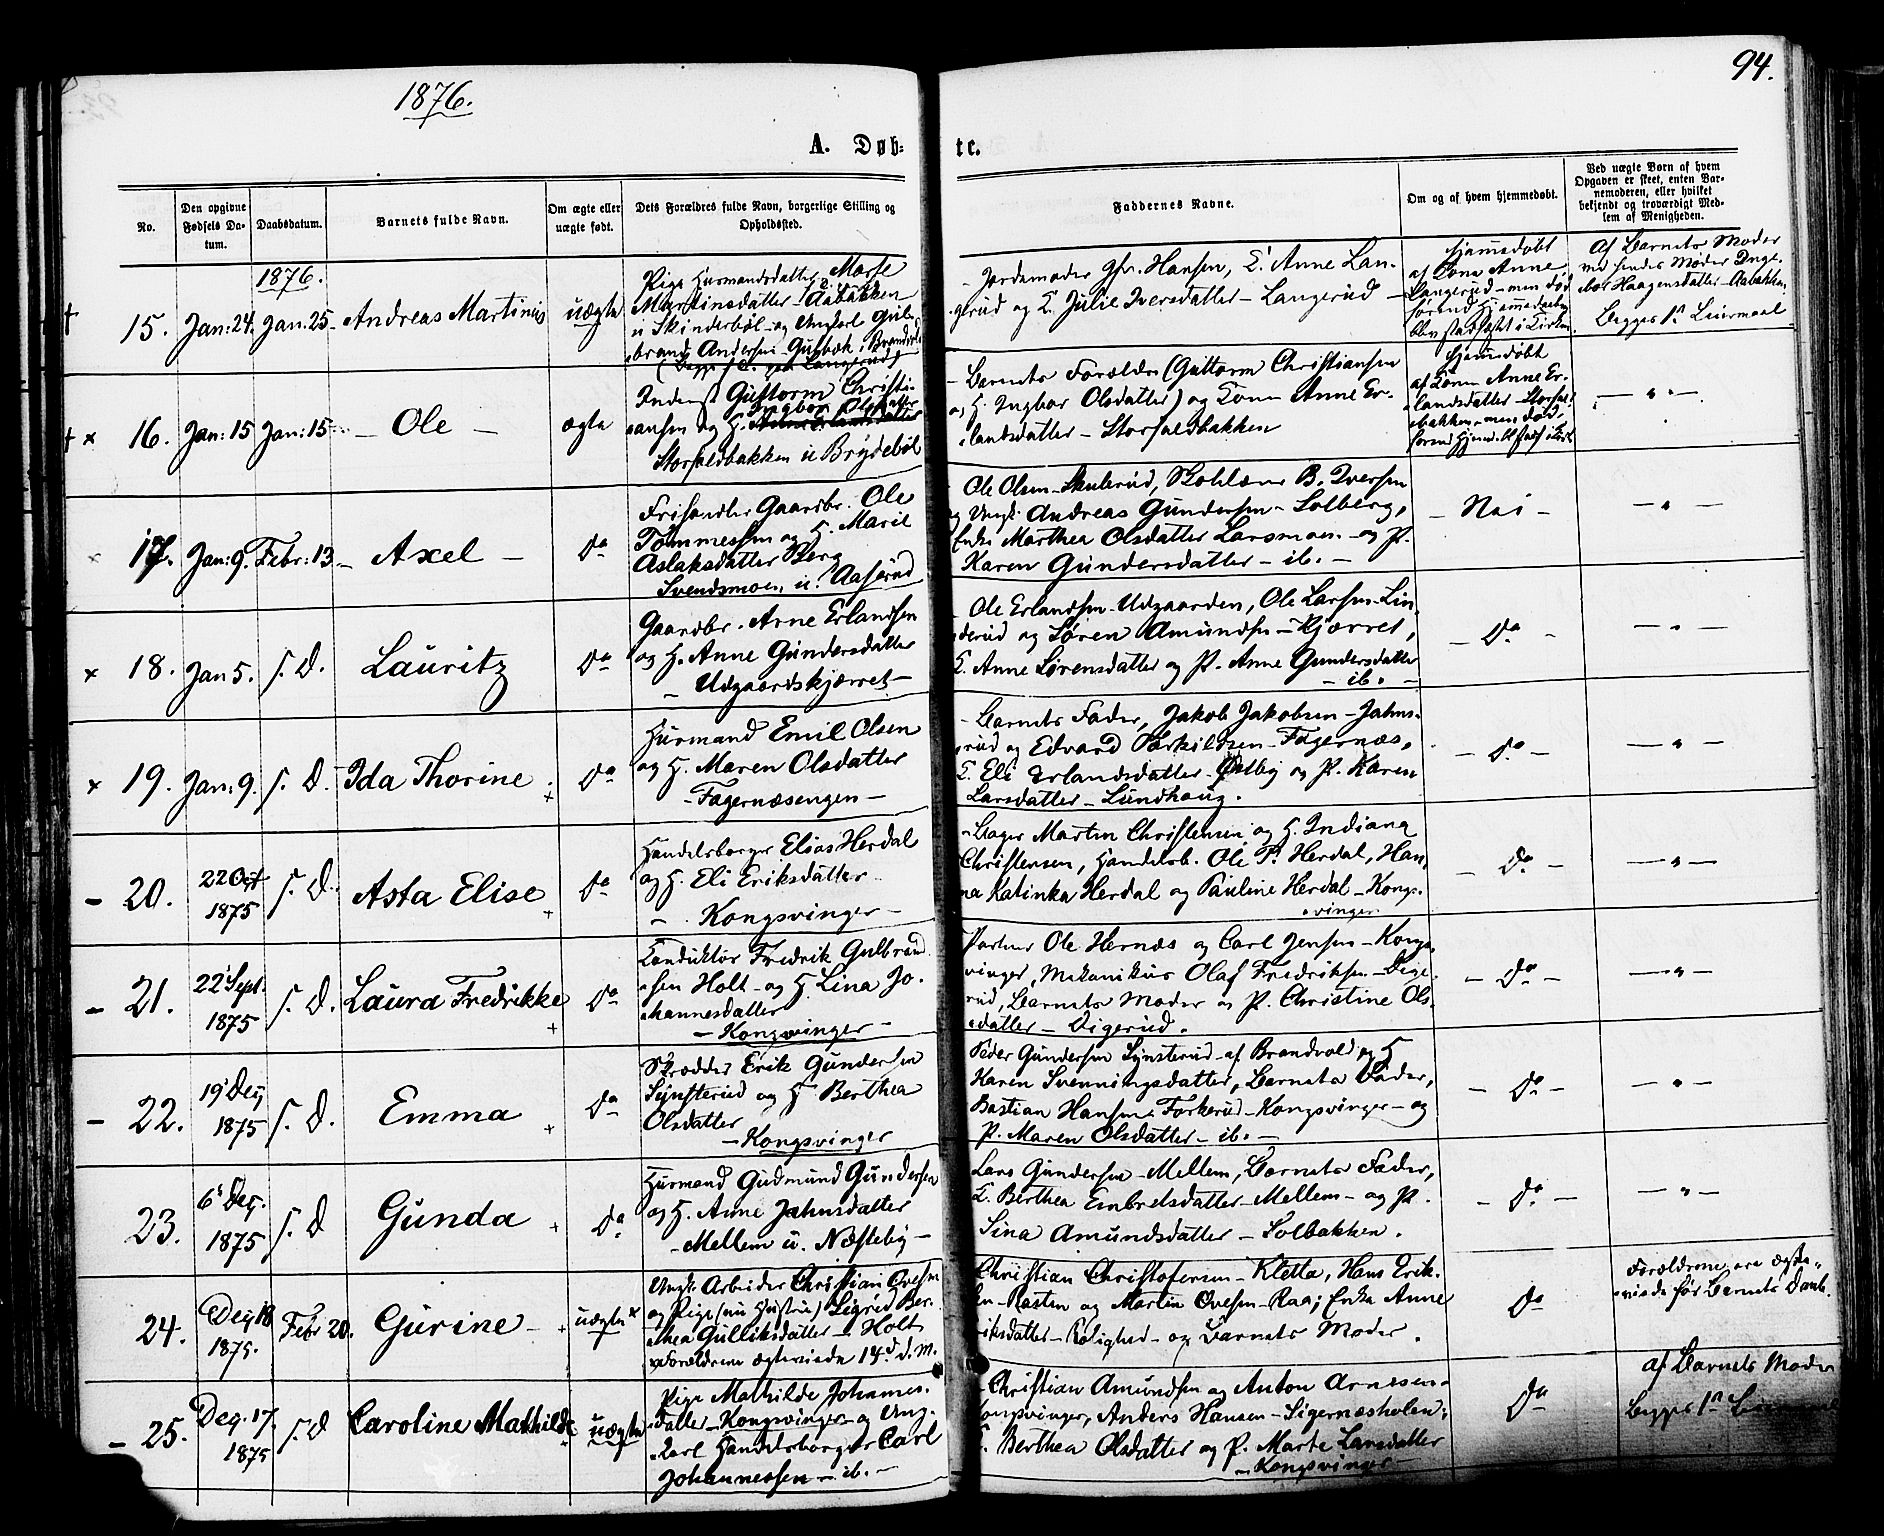 1876.
94.
A. Døb-
te.
No.
Den opgivne Fødsels Da-
tum.
Daabsdatum.
Barnets fulde Navn.
Om ægte eller
uægte født.
Dets Forældres fulde Navn, borgerlige Stilling og
Opholdssted.
Faddernes Navne.
Om og af hvem hjemmedøbt.
Ved uægte Børn af hvem
Opgaven er skeet, enten Bar-
nemoderen, eller hvilket
bekjendt og troværdigt Med-
lem af Menigheden.
1876.
15. Jan: 24. Jan: 25. Andreas Martinius uægte
Pige Husmandsdatter Marte
Martinsdatter Aabakken
u Skinderbøl og Ungkarl Gul-
brand Andersen Gusbæk i Brandvold
Jordemoder Hansen, E. Anne Lan-
gerud og E. Julie Iversdatter - Langerud
hjemmedøbt
af Kone Anne
Langerud - men død
forend Hjemmedaaben
blev stadfæstet i Kirken
Af Barnets Moder
ved hendes Moder Inge-
bor Haagensdatter Aabakken.
Begges 1ste Leiermaal
16. Jan: 15 Jan: 15 - Ole - ægte
Inderst Guttorm Christi-
Ingbor Olsdatter
ansen og H. Anne Erlandsdatter
Storfaldbakken u Brødebøl
- Barnets Forældre (Guttorm Christiansen
og H. Ingbor Olsdatter) og Kone Anne Er-
landsdatter - Storfaldbakken
hjemmedøbt
af Kone Anne Er-
landsdatter Storfald-
bakken - men død
- " -
17. Jan: 9. Febr: 13. - Axel - do
Frihandler Gaardbr. Ole
Tommessen og H. Marie
Aslaksdatter Berg
Svendsmoen u. Aaserud
Ole Olsen Skulerud, Skolelærer B. Iversen
og Ungk. Andreas Gundersen - Solberg,
Enke Marthea Olsdatter Larsmoen - og P.
Karen Gundersdatter - ib. -
- Nei -
- " -
18. Jan 5. s. D. Lauritz do
Gaardbr. Arne Erlandsen
og H. Anne Gundersdatter
- Udgaardskjærret -
- Ole Erlandsen Udgaarden, Ole Larsen - Lin-
derud og Søren Amundsen - Kjærret,
E. Anne Sørensdatter og P. Anne Gundersdatter
- ib. -
- do -
- " -
19. Jan: 9. s. D. Ida Thorine do
Husmand Emil Olsen
og H. Maren Olsdatter
- Fagernæsengen -
- Barnets Fader, Jakob Jakobsen - Jahns-
rud og Edvard Torkildsen - Fagernæs,
E. Eli Erlandsdatter Østby og P. Karen
Larsdatter - Lundhaug.
- do -
- " -
20. 22 Oct 1875 s. D. Asta Elise do
Handelsborger Elias Herdal
og H. Eli Eriksdatter
- Kongsvinger -
- Bager Martin Christensen og H. Indiana
Christensen, Handelsb. Ole P. Herdal, Han-
na Katinka Herdal og Pauline Herdal - Kongs-
vinger
- do -
- " -
21. 22 Sept. 1875 s. D. Laura Fredrikke do
Konduktør Fredrik Gulbrand-
sen Holt - og H Lina Jo-
hannesdatter
- Kongsvinger -
Portner Ole Hernæs og Carl Jensen - Kongs-
vinger, Mekanikus Olaf Fredriksen - Dige-
rud, Barnets Moder og P. Christine Ols-
datter - Digerud.
- do -
- " -
22. 19 Dec 1875 s. D. Emma do
Skrædder Erik Gundersen
Synsterud og H Berthea
Olsdatter
- Kongsvinger
Peder Gundersen Synsterud - af Brandvold og H
Karen Svenningsdatter, Barnets Fader,
Bastian Hansen Forkerud - Kongsvinger - og
P. Maren Olsdatter - ib. -
- do -
- " -
23. 6 Dec. 1875 s. D Gunda do
Husmand Gudmund Gundersen
og H. Anne Jahnsdatter
- Mellem u. Næsteby -
Lars Gundersen - Mellem, Barnets Fader,
E. Berthea Embretsdatter - Mellem - og P.
Sina Amundsdatter - Solbakken.
- do -
- " -
24. Dec 18 1875. Febr 20. Gurine - uægte x
Ungk. Arbeider Christian Ovesen
og Pige (nu Hustru) Sigrid Ber-
thea Gulliksdatter - Holt
x Forældrene ægteviede 14d d. M.
Christian Christofersen - Kletta, Hans Erik-
sen - Rasten og Martin Ovesen - Raa; Enke Anne
Eriksdatter - Rolighed - og Barnets Moder.
do
Forældrene ere ægte-
viede før Barnets Daab.
25. Dec. 17. 1875 s. D Caroline Mathilde uægte
Pige Mathilde Johannes-
datter - Kongsvinger og Ung-
karl Handelsborger Carl
Johannessen - ib. -
- Christian Amundsen og Anton Arnesen -
Kongsvinger, Anders Hansen - Sigernæsholen;
E. Berthea Olsdatter og P. Marte Larsdatter
- Kongsvinger -
do
af Barnets Moder
begges 1ste